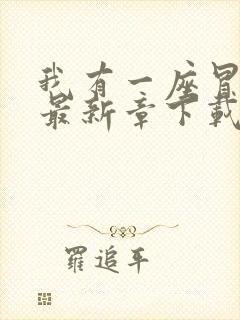 我有一座冒
最新章下载
羅追平